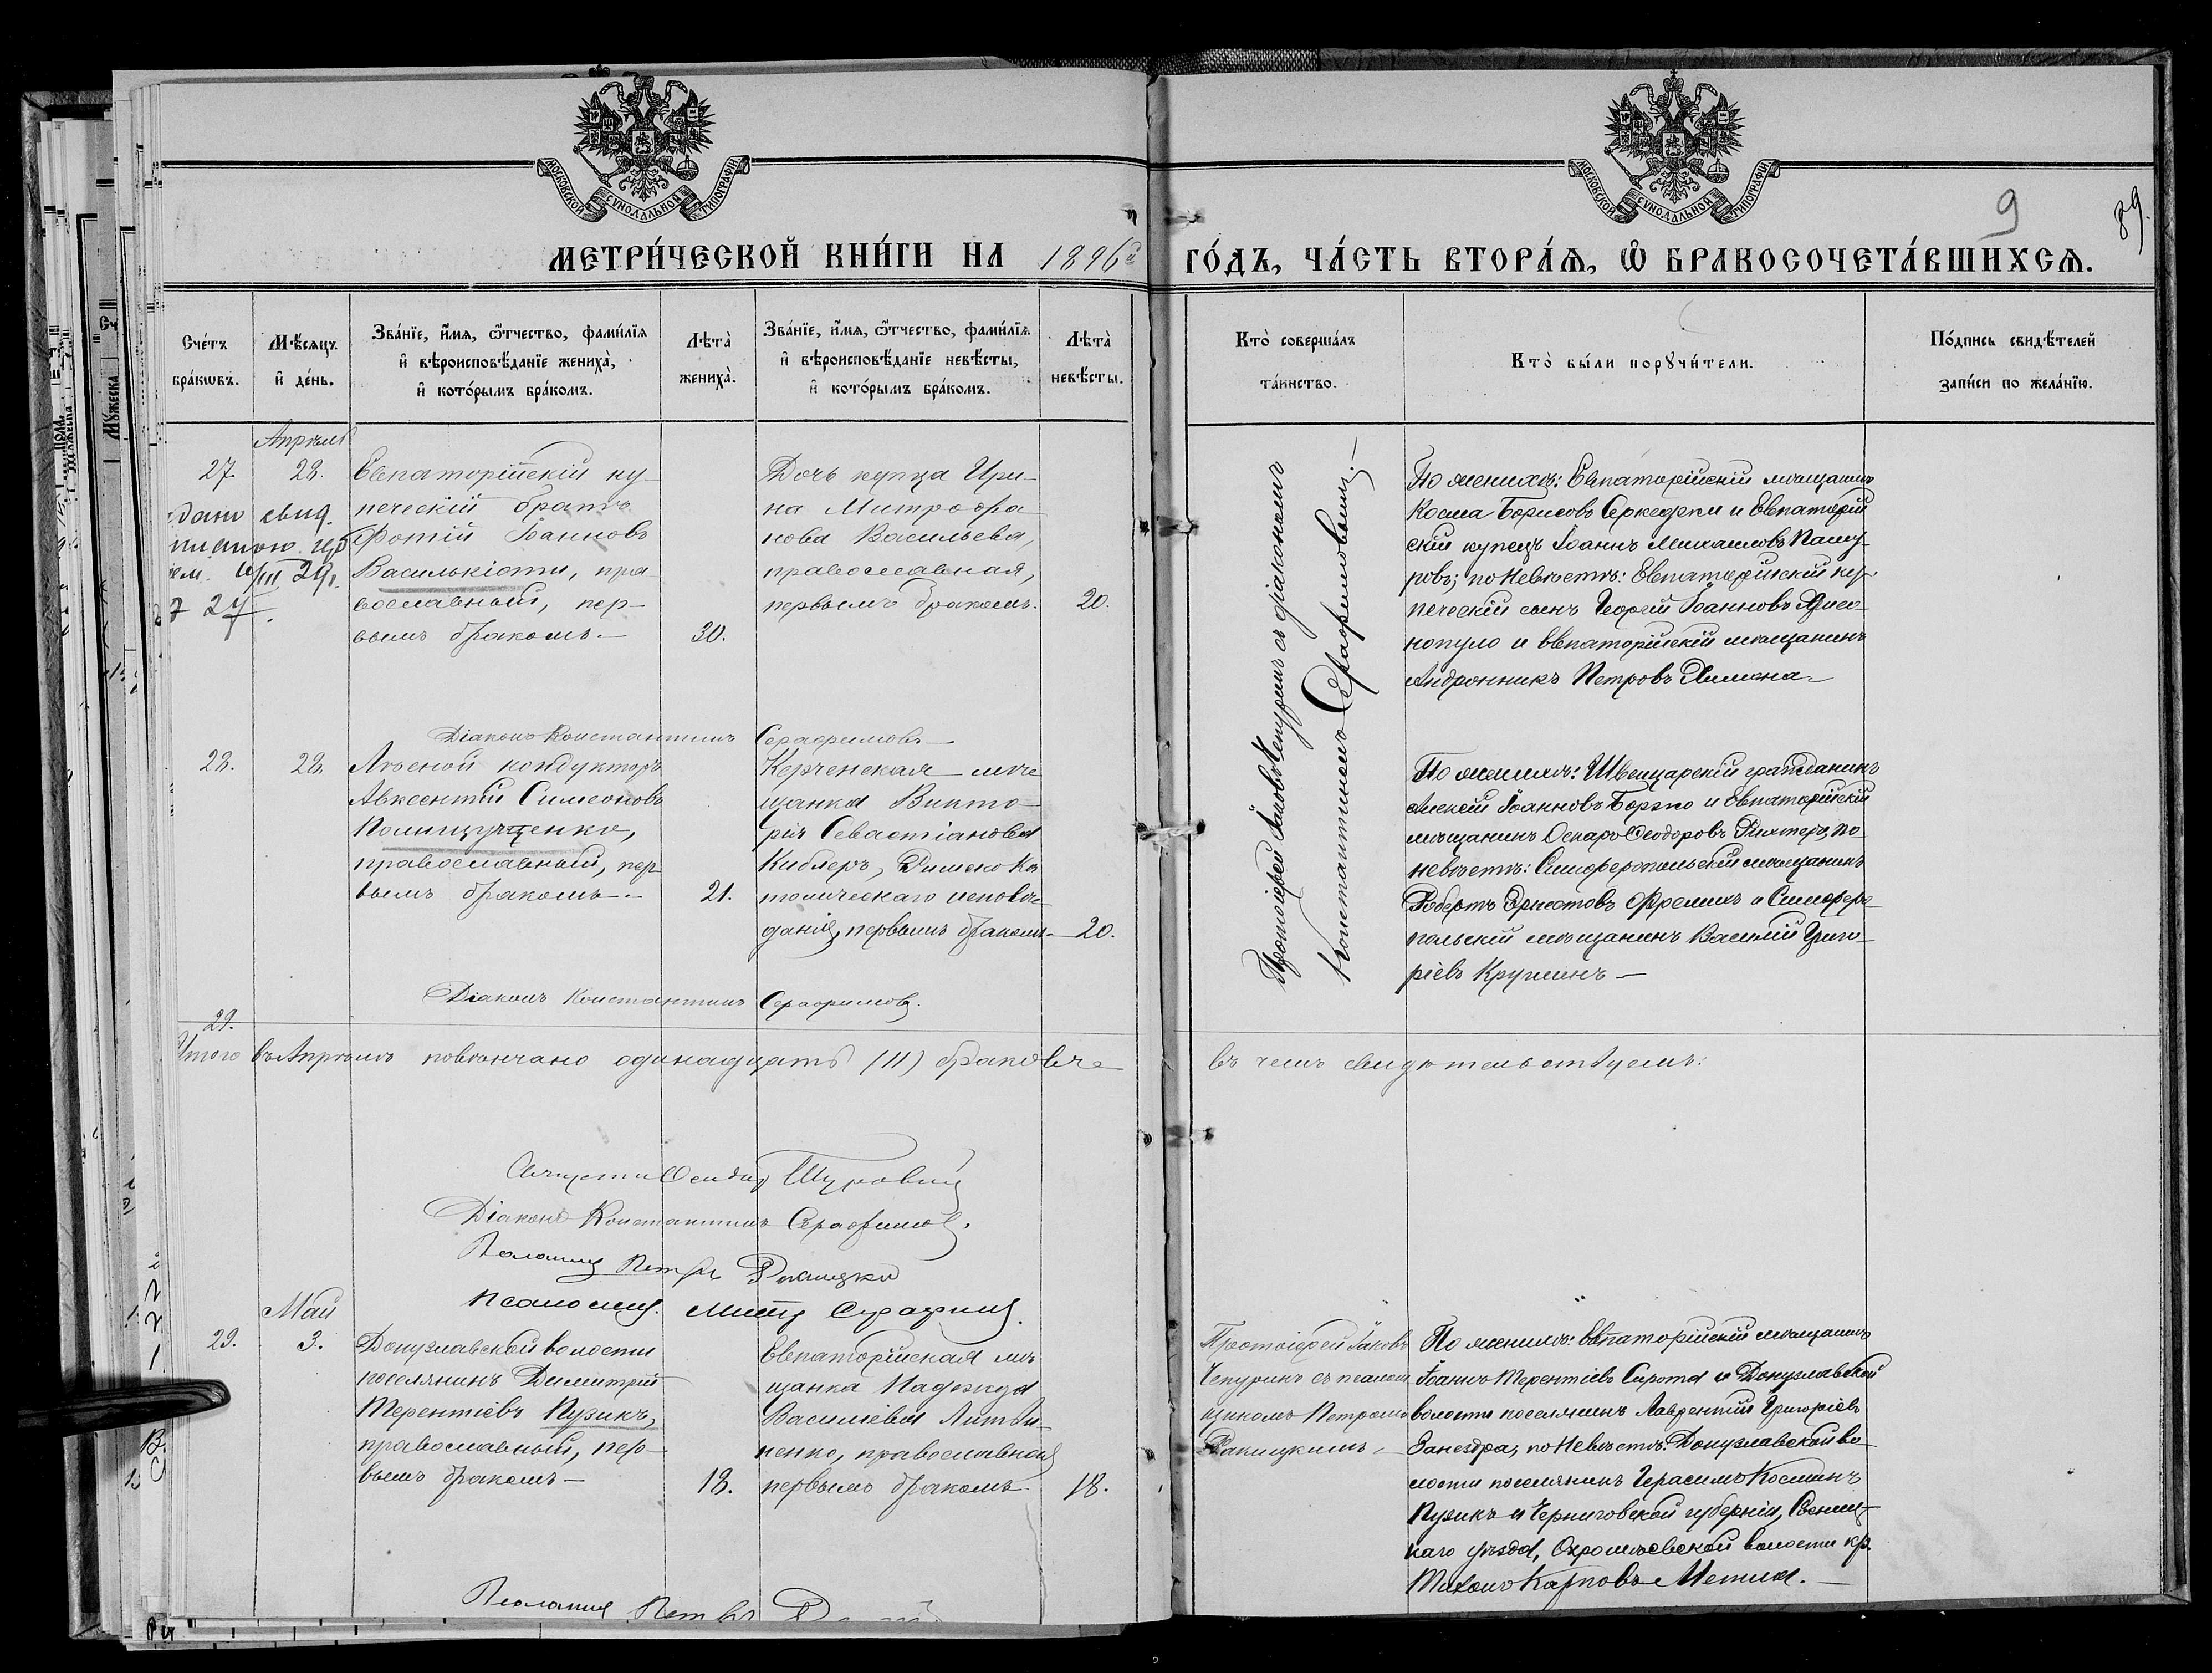 МОСКОВСКОЙ СѴНОДАЛЬНОЙ ТИПОГРАФІИ
МОСКОВСКОЙ СѴНОДАЛЬНОЙ ТИПОГРАФІИ
9
89.
МЕТРИ́ЧЕСКОЙ КНИ́ГИ НА 1896й ГО́ДЪ, ЧА́СТЬ ВТОРА́Ѧ, Ѿ БРАКОСОЧЕТА́ВШИХСѦ.
Сче́тъ бра́кѡвъ.
Мѣ́сяцъ и҆ де́нь.
Зва́нїе, и҆́мѧ, ѻ҆́тчество, фами́лїѧ
и҆ вѣроисповѣ́данїе жениха̀,
и҆ кото́рымъ бра́комъ.
Лѣта̀ жениха̀.
Зва́нїе, и҆́мѧ, ѻ҆́тчество, фами́лїѧ
и҆ вѣроисповѣ́данїе невѣ́сты,
и҆ кото́рымъ бра́комъ.
Лѣта̀ невѣ́сты.
Кто̀ соверша́лъ
та́инство.
Кто̀ бы́ли порꙋчи́тели.
По́дпись свидѣ́телей
за́писи по жела́нїю.
Апрѣль
27.
28.
Евпаторійскій ку-
печескій братъ
Фотій Іоанновъ
Василькіоти, пра-
вославный, пер-
вымъ бракомъ.—
30.
Дочь купца Ири-
на Митрофа-
нова Васильева,
православная,
первымъ бракомъ.
20.
дано свид.
III 24
Протоіерей Іаковъ Чепуринъ съ діакономъ
Константиномъ Серафимовымъ.—
По женихѣ: Евпаторійскій мѣщанинъ
Косма Борисовъ и Евпаторій
скій купецъ Іоаннъ Михаиловъ Пашу-
ровъ; по невѣстѣ: Евпаторійскій ку-
печескій сынъ Георгій Іоанновъ
нопуло и Евпаторійскій мѣщанинъ
Андронникъ Петровъ
Діаконъ Константинъ Серафимовъ
28.
28.
Лѣсной кондукторъ
Авксентій Симеоновъ
православный, пер
вымъ бракомъ.—
21.
Керченская мѣ
щанка Викто-
рія Севастіанова
Киблеръ, Римско Ка
толическаго исповѣ-
данія, первымъ бракомъ.—
20.
По женихѣ: Швейцарскій гражданинъ
Алексѣй Іоанновъ и Евпаторійскій
мѣщанинъ Оскаръ Ѳеодоровъ Рихтеръ, по
невѣстѣ: Симферопольскій мѣщанинъ
Робертъ Эрнестовъ и Симферо-
польскій мѣщанинъ Василій Григо-
ріевъ —
Діаконъ Константинъ Серафимовъ.
29.
Итого въ Апрѣлѣ повѣнчано одинадцать (11) браковъ
въ чемъ свидѣтельствуемъ:
Діаконъ Константинъ Серафимовъ.
Псаломщ. Петръ Ракицкій
Псаломщ. Серафим.
Май
29.
3.
Донузлавской волости
поселянинъ Димитрій
Терентіевъ Пузикъ,
православный, пер-
вымъ бракомъ—
18.
Евпаторійская мѣ
щанка Надежда
Василіева Литви-
ненко, православная
первымъ бракомъ
18.
Протоіерей Іаковъ
Чепуринъ съ псалом
щикомъ Петромъ
Ракицкимъ.
По женихѣ: Евпаторійскій мѣщанинъ
Іоаннъ Терентіевъ Сирота и Донузлавской
волости поселянинъ Лаврентій Григоріевъ
по невѣстѣ: Донузлавской во-
лости поселянинъ Герасимъ Косминъ
Пузикъ и Черниговской губерніи,
каго уѣзда, волости кр.
Тихонъ Карповъ